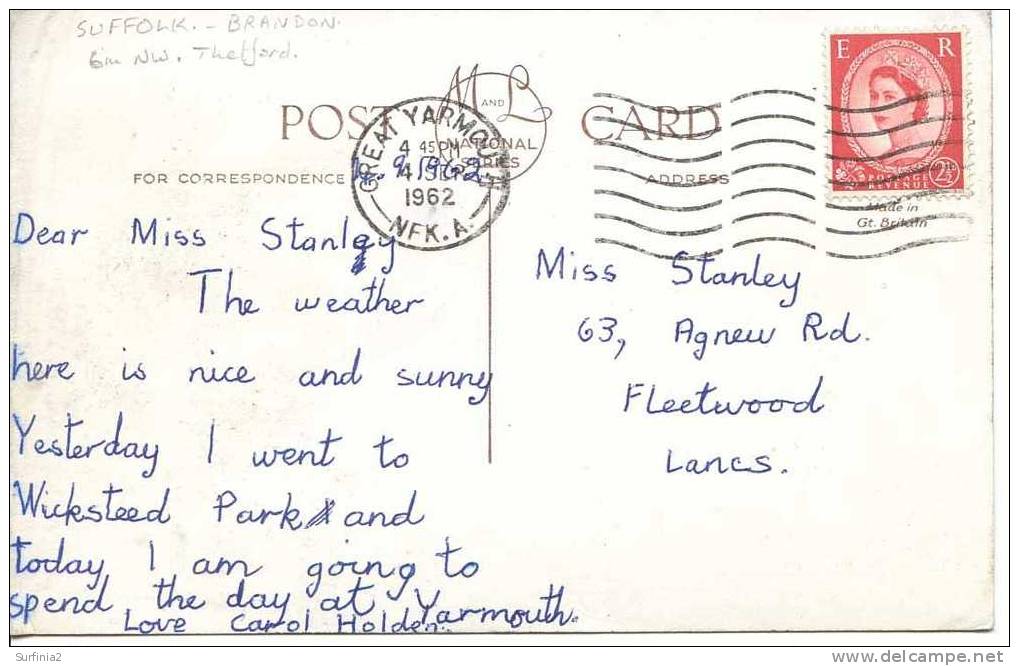 SUFFOLK. - BRANDON.
6m NW. Thetford.
POST CARD
M AND L
NATIONAL
SERIES
FOR CORRESPONDENCE
ADDRESS
GREAT YARMOUTH
4 45 PM
4 SEP
1962
NFK. A.
E R
POSTAGE
REVENUE
2½D
Made in
Gt. Britain
Dear Miss Stanley
The weather
here is nice and sunny
Yesterday I went to
Wicksteed Park and
today I am going to
spend the day at Yarmouth.
Love Carol Holden.
Miss Stanley
63, Agnew Rd.
Fleetwood
Lancs.
Surfinia2
www.delcampe.net